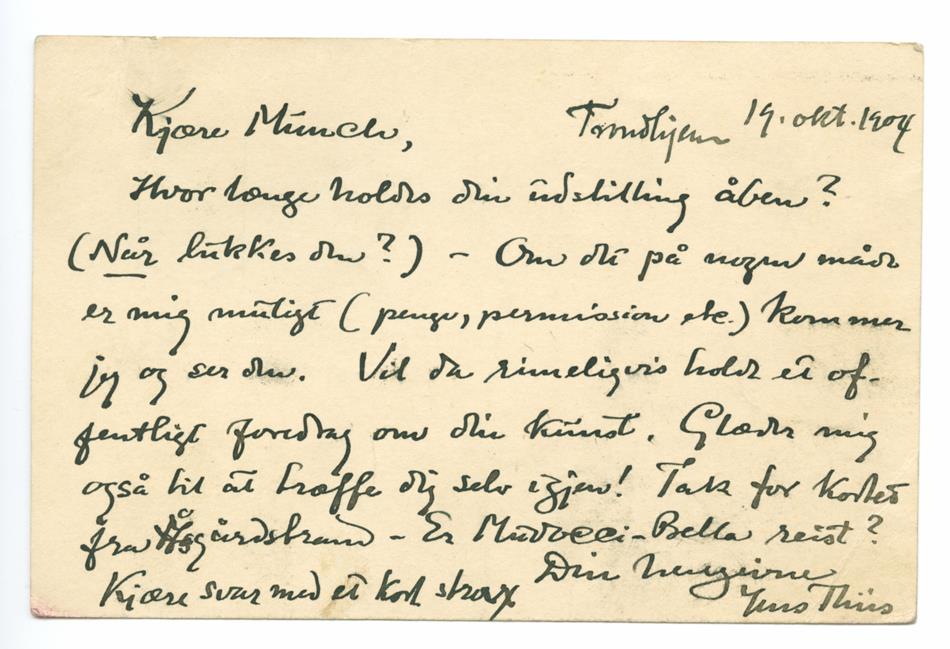 Kjære Munch, Trondhjem 19. okt. 1904
Hvor længe holdes din udstilling åben?
(Når lukkes den?) – Om det på nogen måde
er mig muligt (penge, permission etc.) kommer
jeg og ser den. Vil da rimeligvis holde et of-
fentligt foredrag om din kunst. Glæder mig
også til at træffe dig selv igjen! Tak for kortet
fra Åsgårdstrand – Er Mudocci-Bella reist?
Din hengivne
Kjære svar med et kort strax Jens Thiis